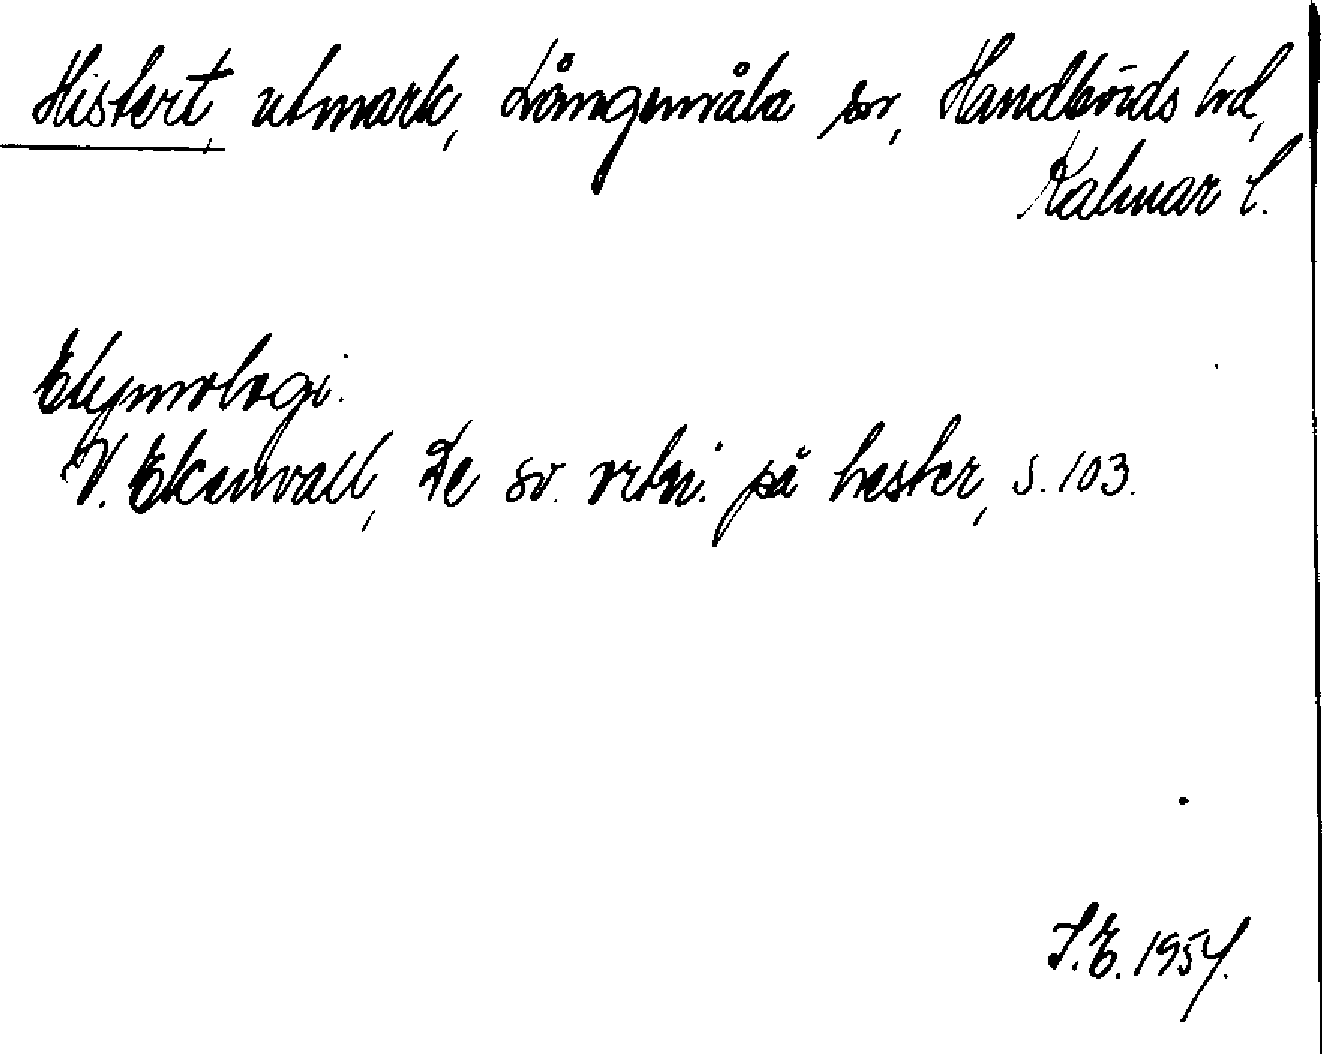 Histert, utmark, Långemåla sn, Handbörds hd,
Kalmar l.
Etymologi.
V. Ekenvall, De sv. ortn. på hester, s. 103.
S.E. 1954.